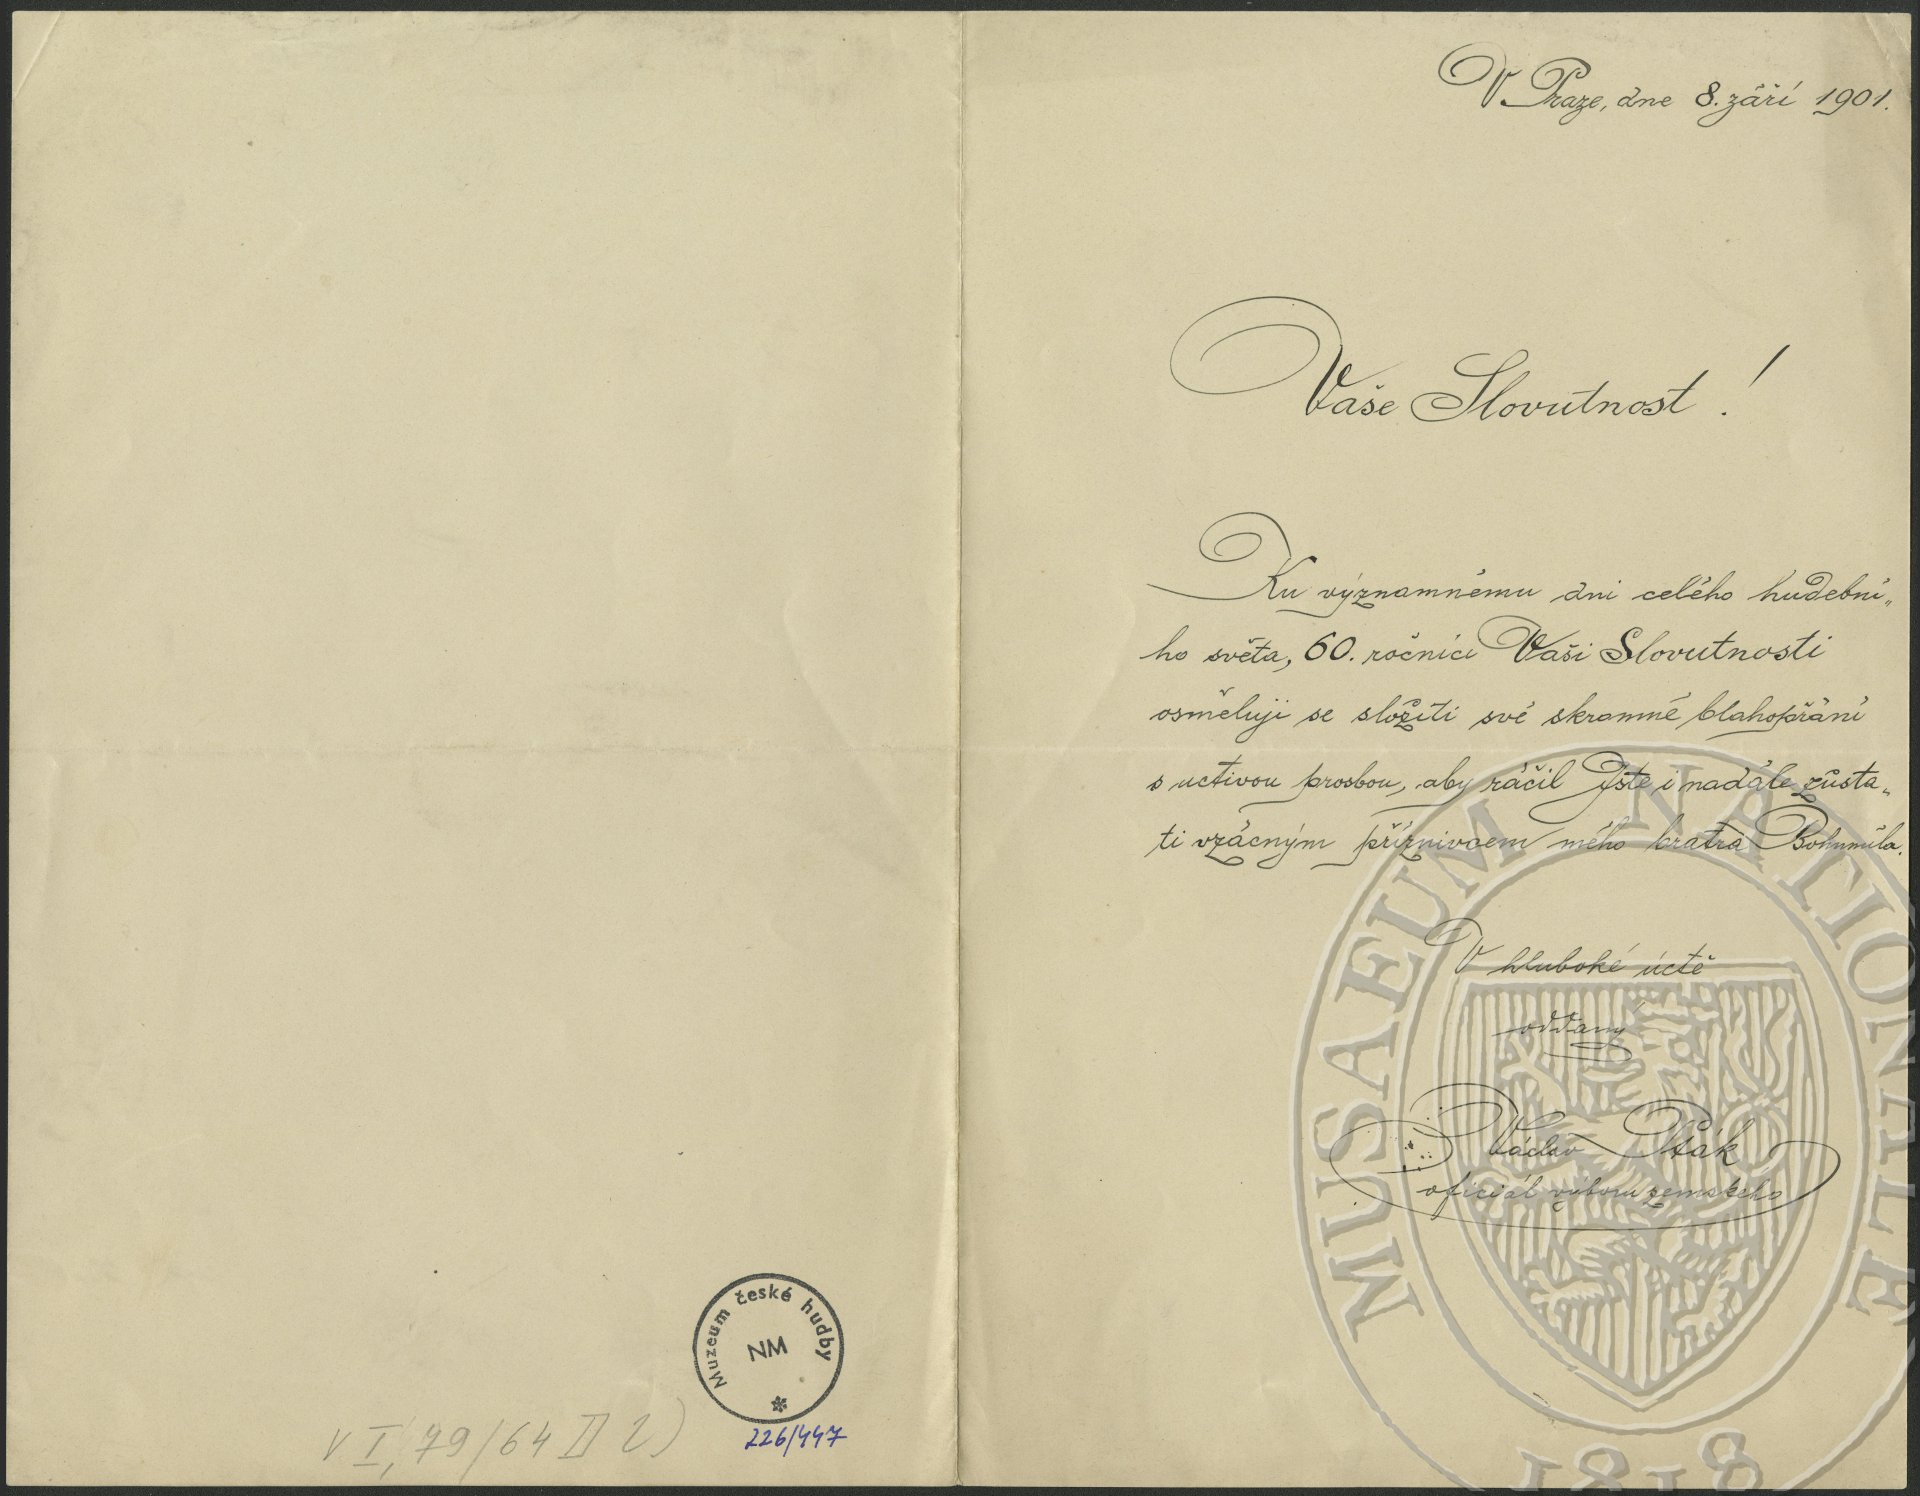 V Praze, dne 8. září 1901.
Vaše Slovutnost!
Ku významnému dni celého hudební„
ho světa, 60. ročnici Vaší Slovutnosti
osměluji se složiti své skromné blahopřání
s uctivou prosbou, aby ráčil Jste i nadále zůsta„
ti vzácným příznivcem mého bratra Bohumila.
V hluboké úctě
oddaný
Václav Pták
oficiál výboru zemského
Muzeum české hudby
NM
226/447
V I, 79/64 II 2)
MUSAEUM NATIONALE
1818